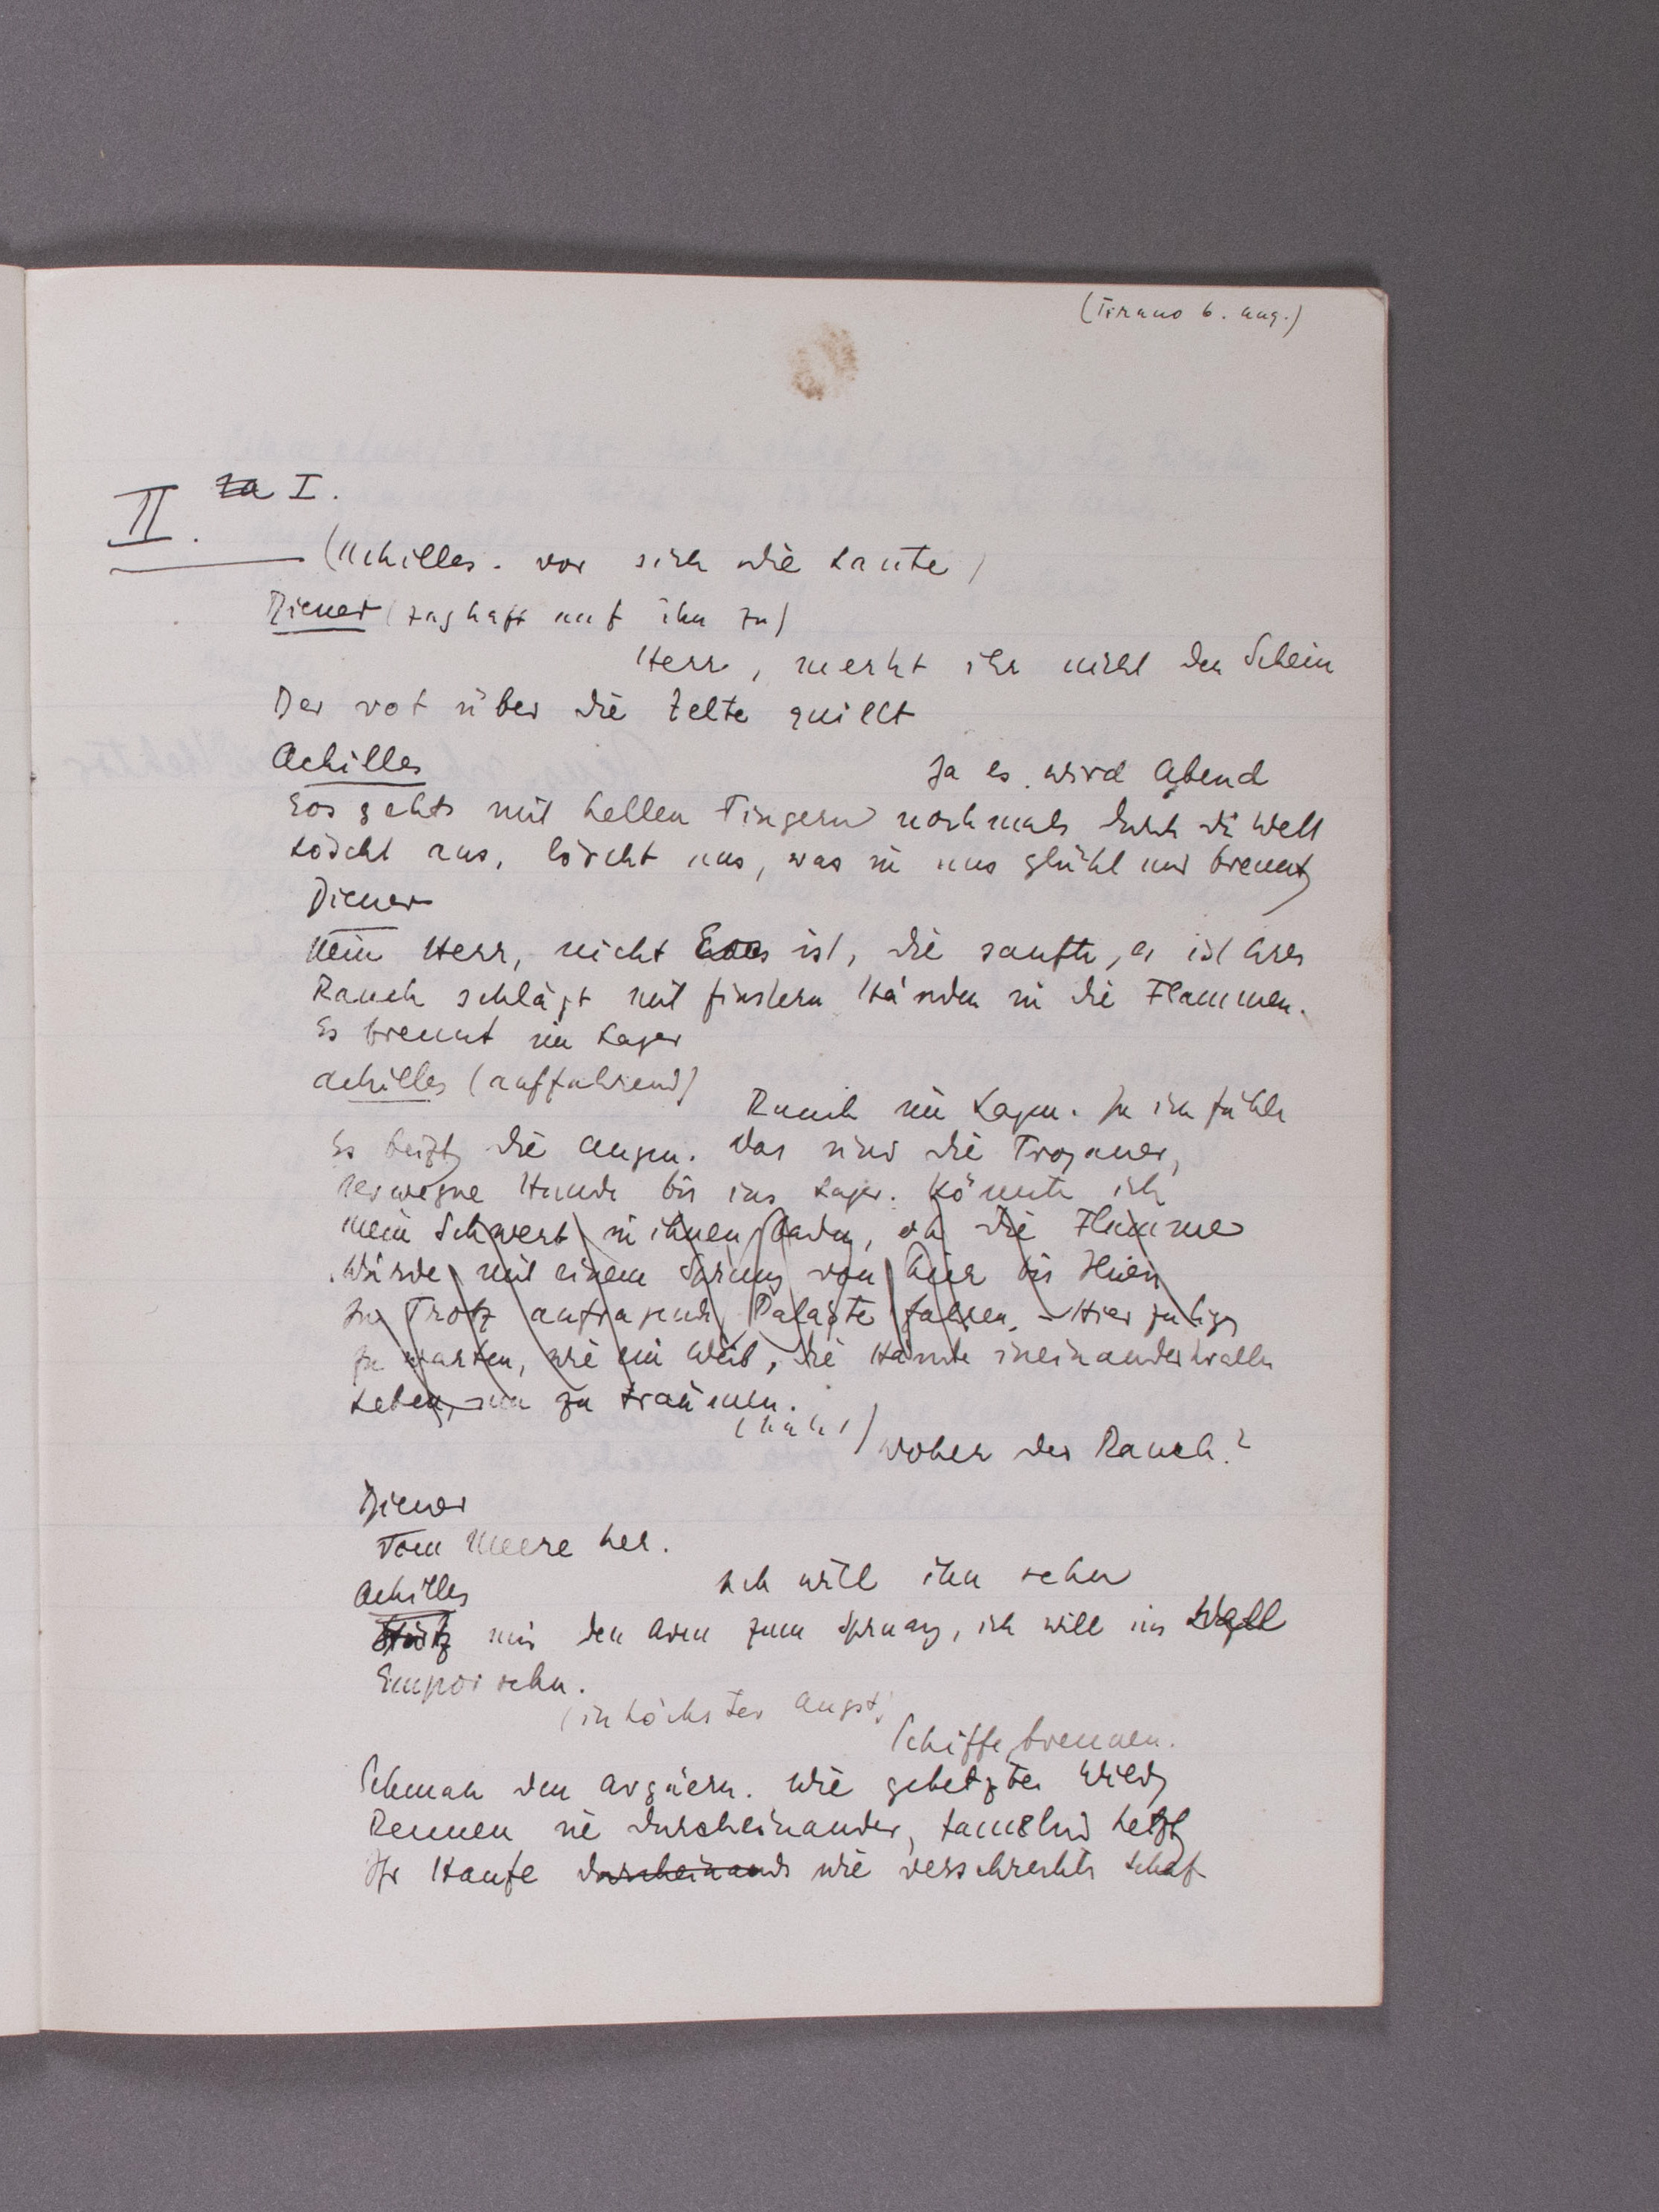 (Tirano 6. Aug.)
II. za I.
(Achilles. vor sich die Laute)
Diener (zaghaft auf ihn zu)
Herr, merkt ihr nicht den Schein
Der rot über die Zelte quillt
Achilles
Ja es wird Abend
Eos gehts mit hellen Fingern nochmals durch die Welt
Löscht aus, löscht aus, was in uns glüht und brennt
Diener
Nein Herr, nicht Eos ist, die sanfte, es ist Ares
Rauch schlägt mit finstern Händen in die Flammen.
Es brennt im Lager
Achilles (auffahrend)
Rauch im Lager. Ja ich fühle
Es beizt die Augen. Das sind die Trojaner,
verwegne Hunde bis ins Lager. Könnte ich
mein Schwert in ihnen baden, oh die Flamme
Würde mit einem Sprung von hier bis Hien
In Trotz aufragende Paläste fahren. – Hier zu liegen
zu warten, wie ein Weib, die Hände ineinander
Leben, zu träumen.
Woher der Rauch?
Diener
Vom Meere her.
Achilles
Ich will ihn sehn
Stütz mir den Arm zum Sprung, ich will im Wall
Empor sehn.
(in höchster Angst)
Schiffe brennen.
Schmach den Argäern. Wie gehetztes Wild
Rennen sie durcheinander, taumelnd hetzt
Ihr Haufe durcheinander wie verschreckte Schaf